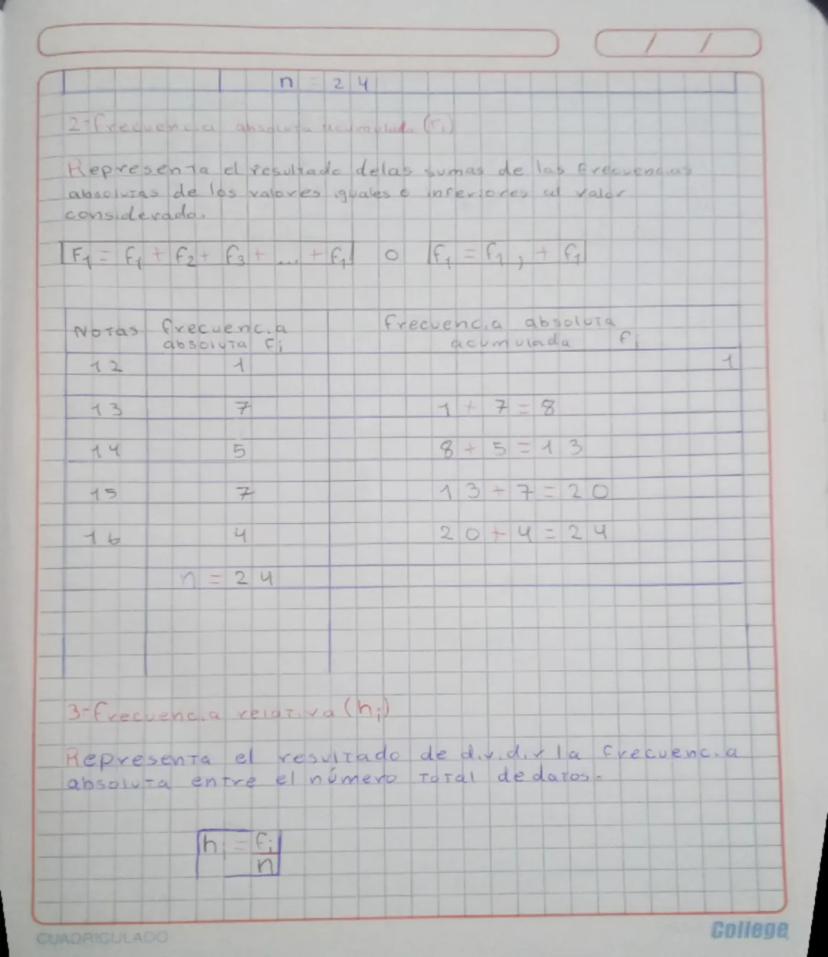 n = 24
2-frecuencia absoluta acumulada (Fi)
Representa el resultado delas sumas de las frecuencias
absolutas de los valores iguales e inferiores al valor
considerado.
F1 = f1 + f2 + f3 + ... + f1 o f1 = f1, + f1
Notas frecuencia absoluta fi frecuencia absoluta acumulada fi
12 1 1
13 7 1 + 7 = 8
14 5 8 + 5 = 13
15 7 13 + 7 = 20
16 4 20 + 4 = 24
n = 24
3-frecuencia relativa (hi)
Representa el resultado de dividir la frecuencia
absoluta entre el número total de datos.
hi = fi/n
CUADRICULADO
College